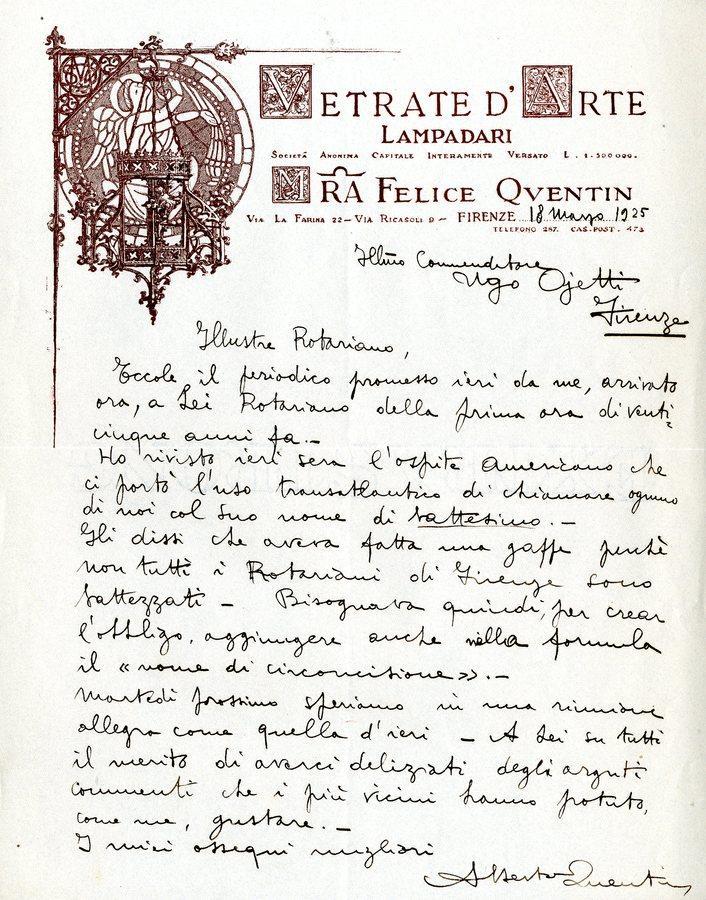 VETRATE D'ARTE
LAMPADARI
SOCIETÀ ANONIMA CAPITALE INTERAMENTE VERSATO L. 1.500000.
MRA FELICE QVENTIN
VIA LA FARINA 22 – VIA RICASOLI 9 – FIRENZE 18 Marzo 1925
TELEFONO 287. CAS. POST. 473
Illmo Commendatore
Ugo Ojetti
Firenze
Illustre Rotariano,
Eccole il periodico promesso ieri da me, arrivato
ora, a Lei Rotariano della prima ora di venti=
cinque anni fa. –
Ho rivisto ieri sera l'ospite americano che
ci portò l'uso transatlantico di chiamare ognuno
di noi col suo nome di battesimo. –
Gli dissi che aveva fatta una gaffe perchè
non tutti i Rotariani di Firenze sono
battezzati – Bisognava quindi, per crear
l'obbligo, aggiungere anche nella formula
il « nome di circoncisione ». –
Martedì prossimo speriamo in una riunione
allegra come quella d'ieri – A Lei su tutti
il merito di averci deliziati degli arguti
commenti che i più vicini hanno potuto,
come me, gustare. –
I miei ossequi migliori
Alberto Quentin